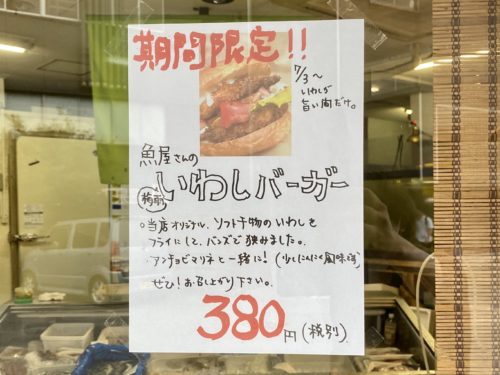 期間限定!!
7/3〜
いわしが
旨い間だけ。
魚屋さんの
梅雨
いわしバーガー
○当店オリジナル、ソフト干物のいわしを
フライにして、バンズで挟みました。
・アンチョビマリネと一緒に!(少しにんにく風味様)
ぜひ!お召し上がり下さい。
380円(税別)